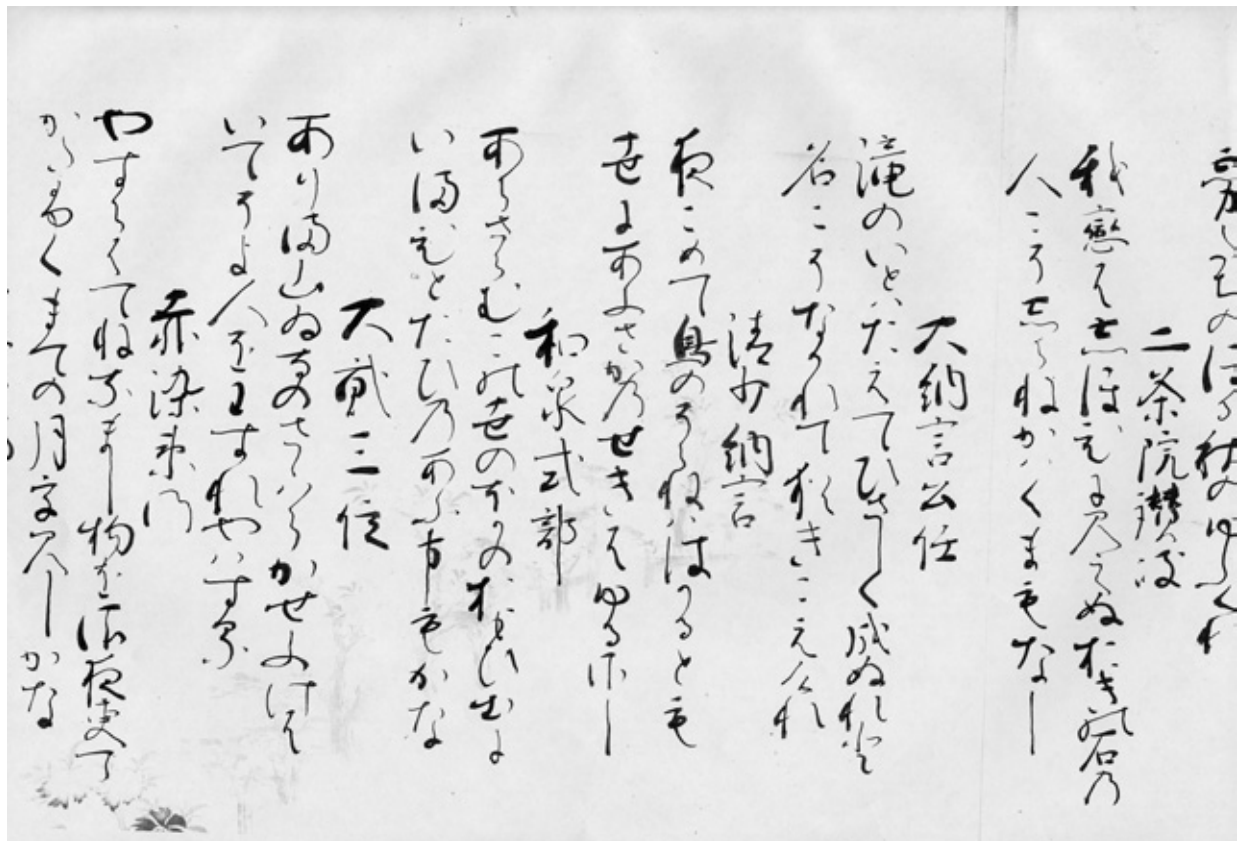 霧たちのほる秋のゆふくれ
二条院讃岐
我恋はしほひに見えぬおきの石の
人こそしらねかはくまもなし
大納言公任
滝のいとはたえてひさしく成ぬれと
名こそなかれて猶きこえけれ
清少納言
夜こめて鳥のそらねははかるとも
世にあふさかのせきはゆるさし
和泉式部
あらさらむこの世のほかのおもひ出に
いまひとたひのあふ事もかな
大貳三位
あり馬山ゐなのさゝ原かせふけは
いてそよ人をわすれやはする
赤染衛門
やすらはてねなまし物を小夜更て
かたふくまての月を見しかな